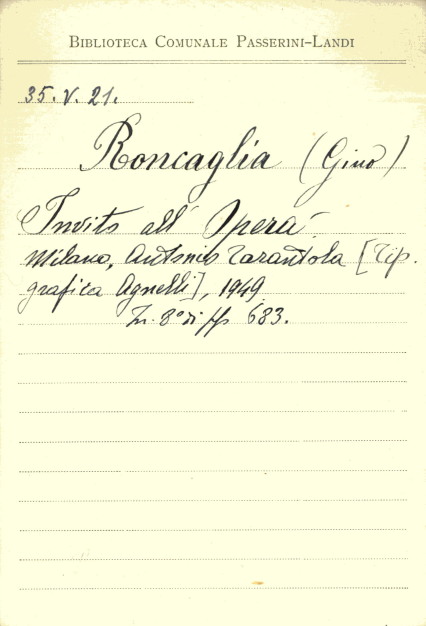 BIBLIOTECA COMUNALE PASSERINI-LANDI
35. V. 21.
Roncaglia (Gino)
Invito all' Opera.
Milano, Antonio Tarantola [Tip.
grafica Agnelli], 1949.
In. 8° di pp 683.